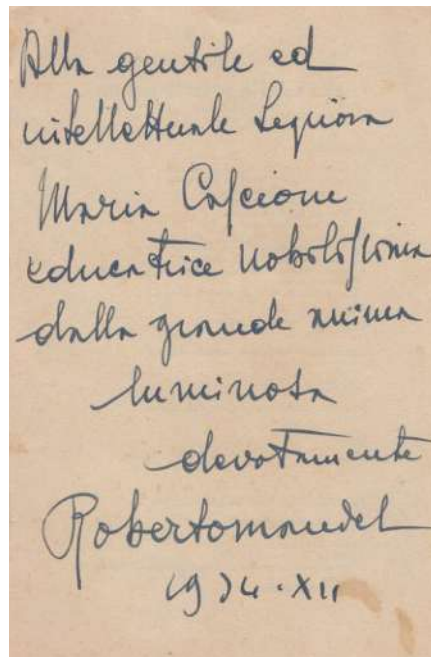 Alla gentile ed
intellettuale Signora
Maria Cascione
educatrice nobilissima
dalla grande anima
luminosa
devotamente
Robertomandel
1934·XII